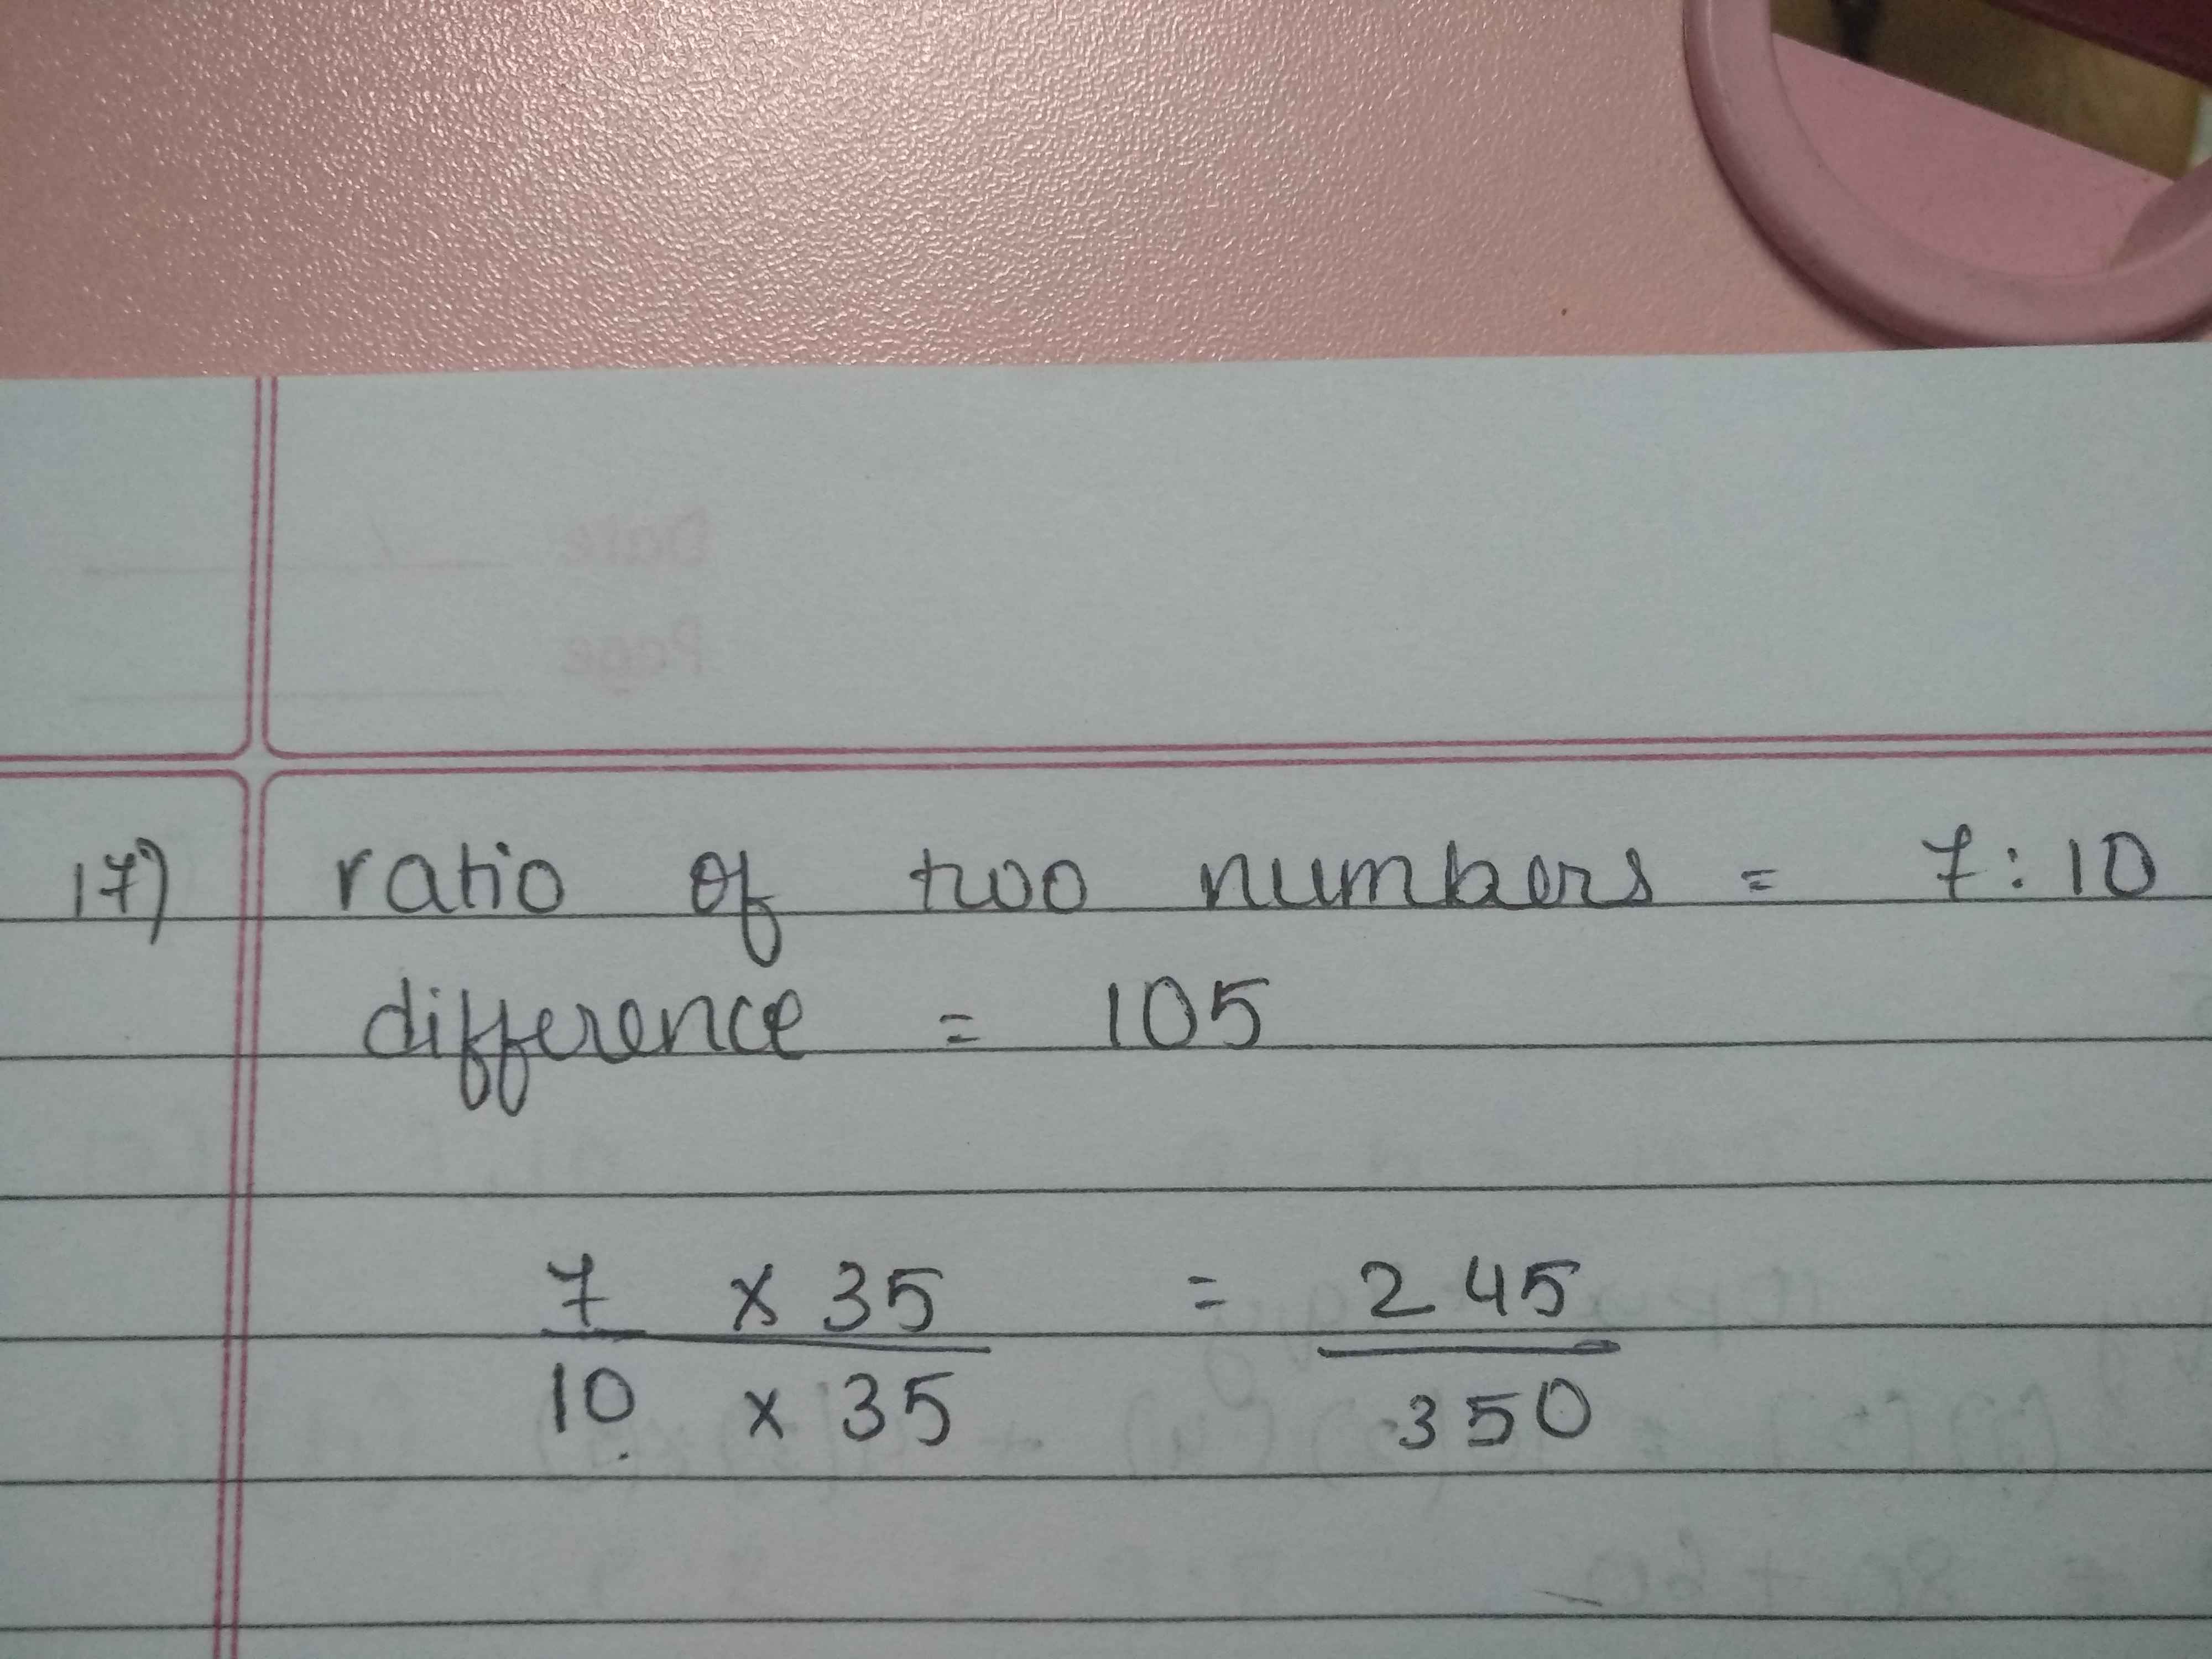 17) ratio of two numbers = 7:10
difference = 105
7 × 35 = 245
10 × 35 350